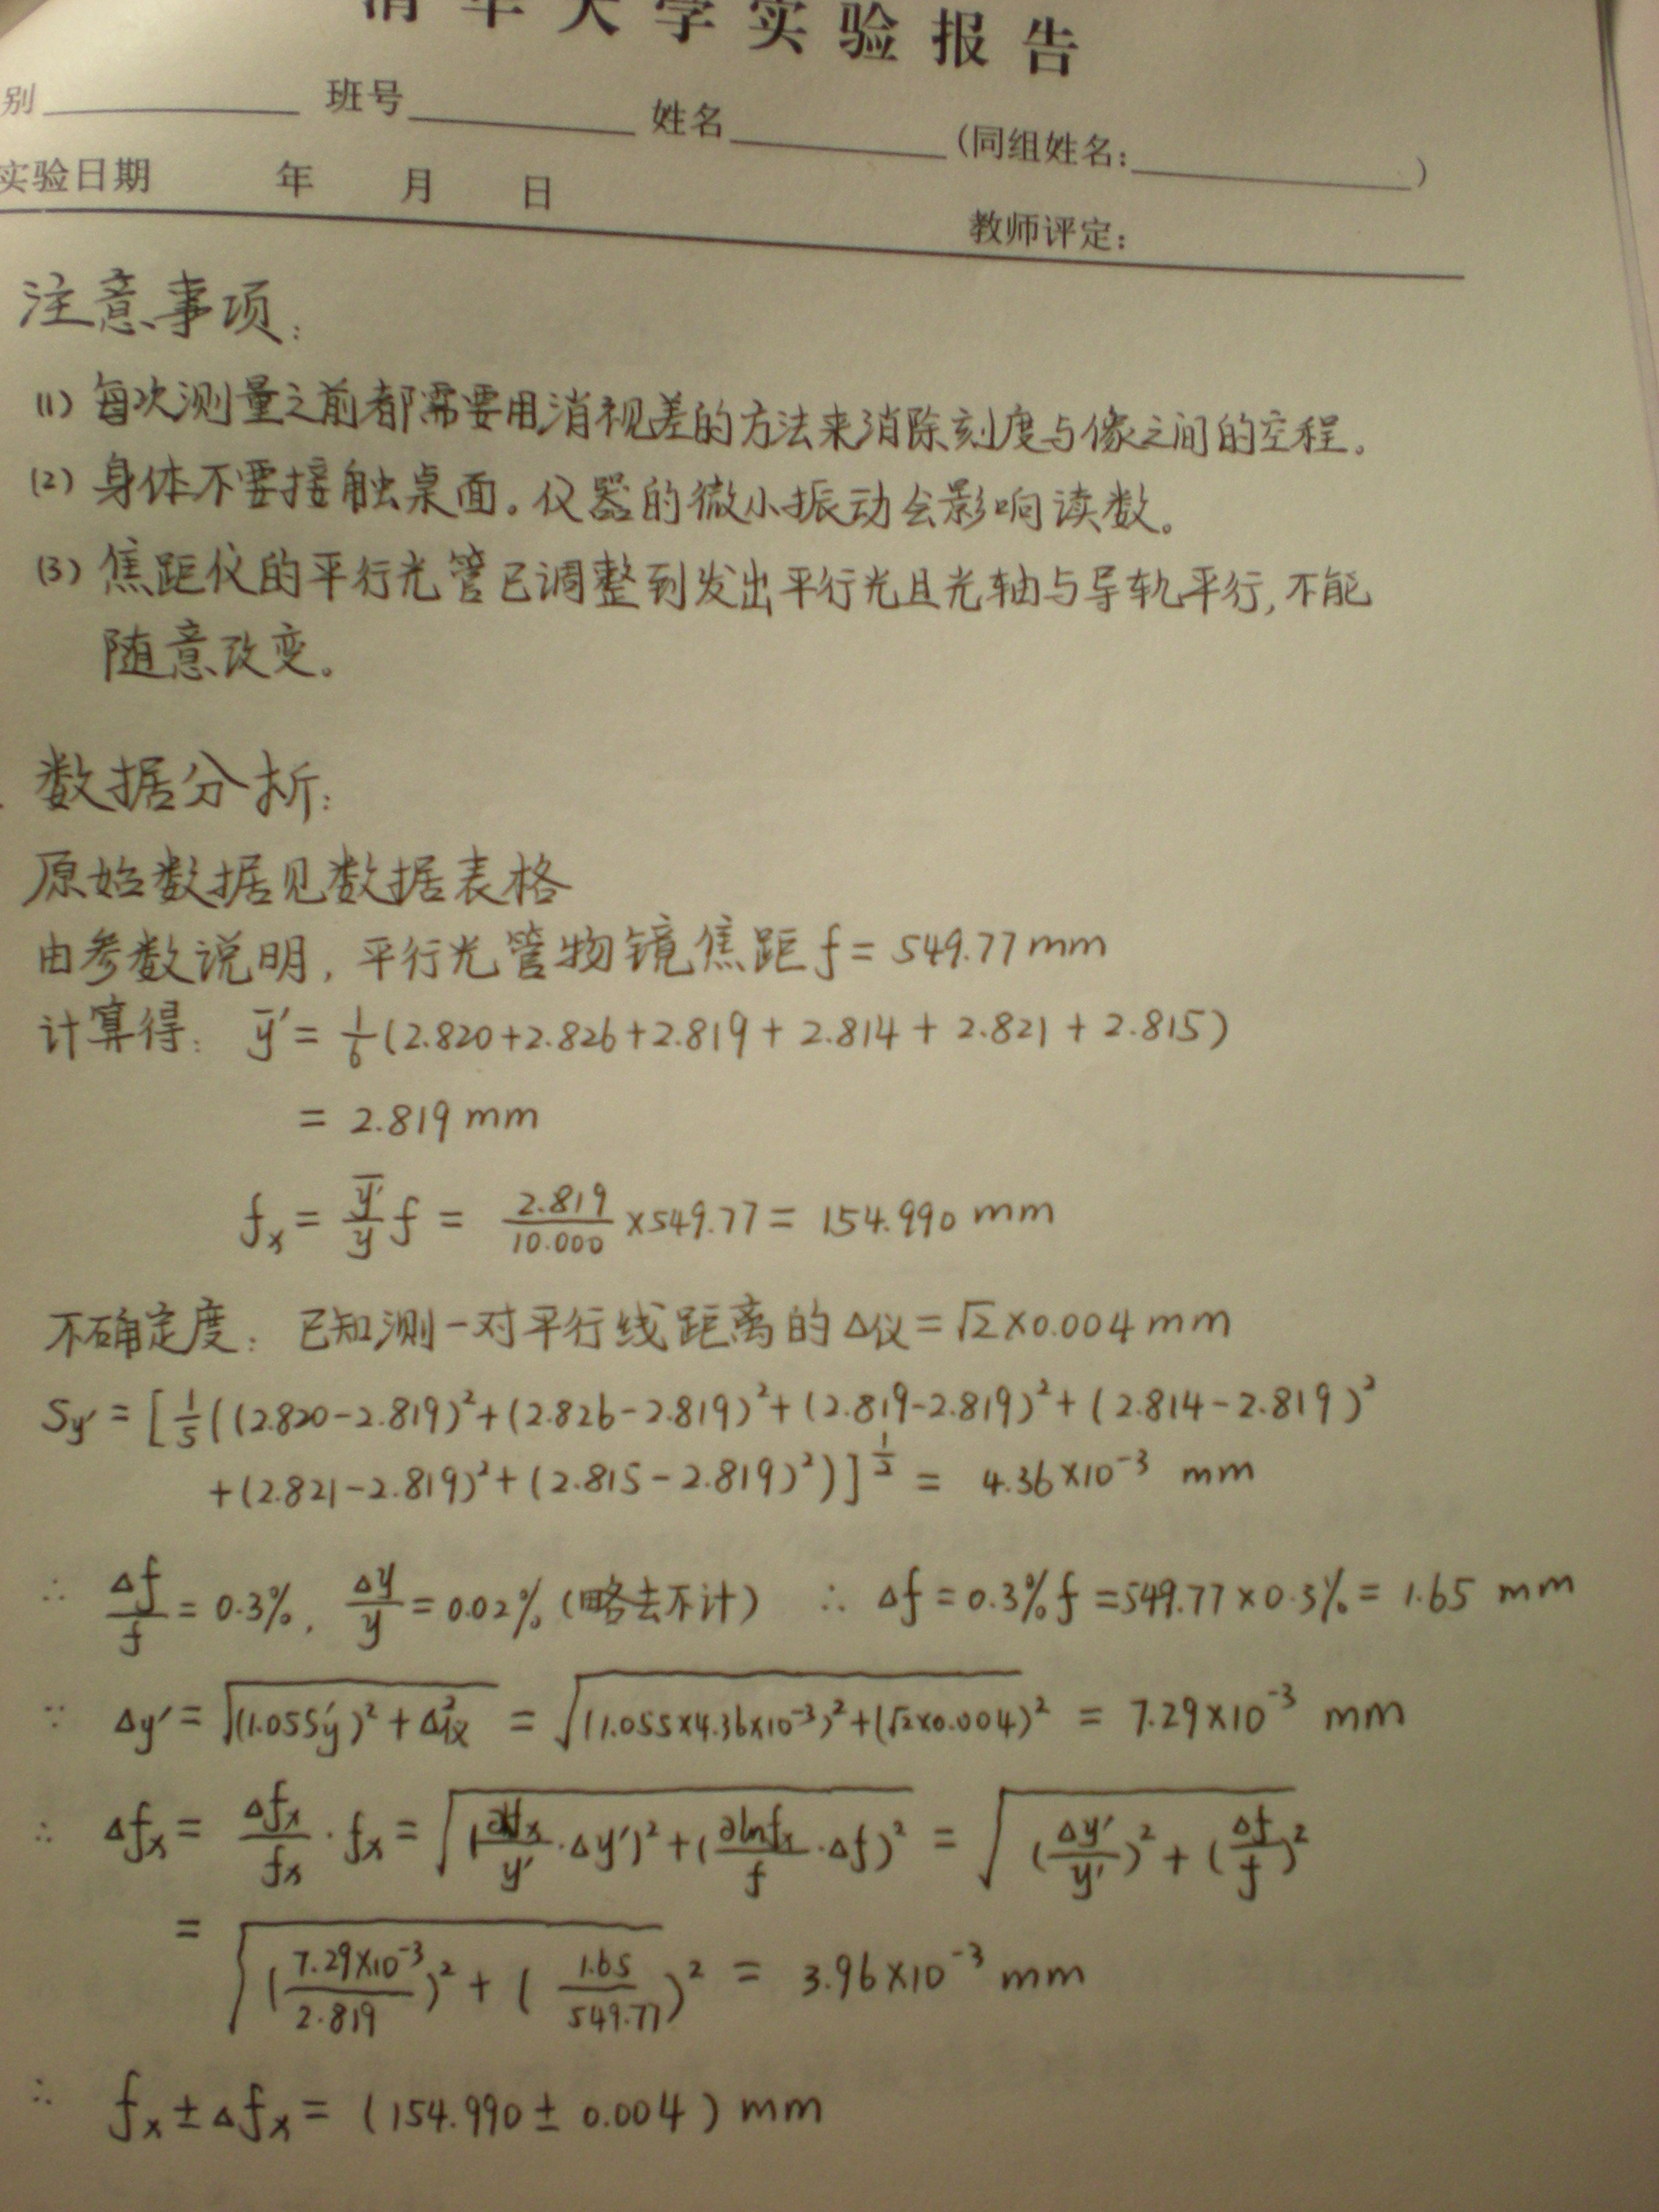 清华大学实验报告
别 班号 姓名 (同组姓名: )
实验日期 年 月 日
教师评定:
注意事项:
(1) 每次测量之前都需要用消视差的方法来消除刻度与像之间的空程。
(2) 身体不要接触桌面。仪器的微小振动会影响读数。
(3) 焦距仪的平行光管已调整到发出平行光且光轴与导轨平行,不能
随意改变。
数据分析:
原始数据见数据表格
由参数说明,平行光管物镜焦距 f = 549.77 mm
计算得: ȳ' = 1/6 (2.820+2.826+2.819+2.814+2.821+2.815)
= 2.819 mm
fx = ȳ'/y f = 2.819/10.000 ×549.77 = 154.990 mm
不确定度: 已知测一对平行线距离的 Δ仪 = √2×0.004 mm
Sy' = [1/5((2.820-2.819)²+(2.826-2.819)²+(2.819-2.819)²+(2.814-2.819)²
+(2.821-2.819)²+(2.815-2.819)²)]^(1/2) = 4.36×10⁻³ mm
∴ Δf/f = 0.3%, Δy/y = 0.02% (略去不计) ∴ Δf = 0.3%f = 549.77×0.3% = 1.65 mm
∵ Δy' = √((1.05Sy')²+Δ仪²) = √((1.05×4.36×10⁻³)²+(√2×0.004)²) = 7.29×10⁻³ mm
∴ Δfx = Δfx/fx · fx = √((fx/y' · Δy')²+(∂lnfx/f · Δf)²) = √((Δy'/y')²+(Δf/f)²)
= √((7.29×10⁻³/2.819)²+(1.65/549.77)²) = 3.96×10⁻³ mm
∴ fx±Δfx = (154.990±0.004) mm